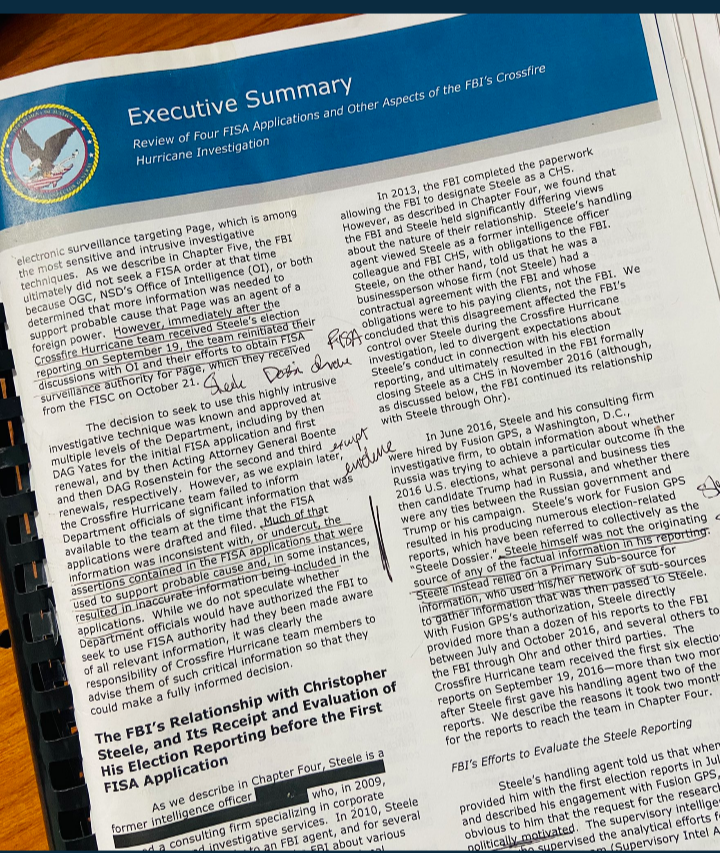 Executive Summary
Review of Four FISA Applications and Other Aspects of the FBI's Crossfire
Hurricane Investigation
electronic surveillance targeting Page, which is among
the most sensitive and intrusive investigative
techniques. As we describe in Chapter Five, the FBI
ultimately did not seek a FISA order at that time
because OGC, NSD's Office of Intelligence (OI), or both
determined that more information was needed to
support probable cause that Page was an agent of a
foreign power. However, immediately after the
Crossfire Hurricane team received Steele's election
reporting on September 19, the team reinitiated their
discussions with OI and their efforts to obtain FISA
surveillance authority for Page, which they received
from the FISC on October 21.
Steele
FISA
The decision to seek to use this highly intrusive
investigative technique was known and approved at
multiple levels of the Department, including by then
DAG Yates for the initial FISA application and first
renewal, and by then Acting Attorney General Boente
and then DAG Rosenstein for the second and third
renewals, respectively. However, as we explain later,
the Crossfire Hurricane team failed to inform
Department officials of significant information that was
available to the team at the time that the FISA
applications were drafted and filed. Much of that
information was inconsistent with, or undercut, the
assertions contained in the FISA applications that were
used to support probable cause and, in some instances,
resulted in inaccurate information being included in the
applications. While we do not speculate whether
Department officials would have authorized the FBI to
seek to use FISA authority had they been made aware
of all relevant information, it was clearly the
responsibility of Crossfire Hurricane team members to
advise them of such critical information so that they
could make a fully informed decision.
The FBI's Relationship with Christopher
Steele, and Its Receipt and Evaluation of
His Election Reporting before the First
FISA Application
As we describe in Chapter Four, Steele is a
former intelligence officer who, in 2009,
a consulting firm specializing in corporate
investigative services. In 2010, Steele
an FBI agent, and for several
FBI about various
In 2013, the FBI completed the paperwork
allowing the FBI to designate Steele as a CHS.
However, as described in Chapter Four, we found that
the FBI and Steele held significantly differing views
about the nature of their relationship. Steele's handling
agent viewed Steele as a former intelligence officer
colleague and FBI CHS, with obligations to the FBI.
Steele, on the other hand, told us that he was a
businessperson whose firm (not Steele) had a
contractual agreement with the FBI and whose
obligations were to his paying clients, not the FBI. We
concluded that this disagreement affected the FBI's
control over Steele during the Crossfire Hurricane
investigation, led to divergent expectations about
Steele's conduct in connection with his election
reporting, and ultimately resulted in the FBI formally
closing Steele as a CHS in November 2016 (although,
as discussed below, the FBI continued its relationship
with Steele through Ohr).
In June 2016, Steele and his consulting firm
were hired by Fusion GPS, a Washington, D.C.,
investigative firm, to obtain information about whether
Russia was trying to achieve a particular outcome in the
2016 U.S. elections, what personal and business ties
then candidate Trump had in Russia, and whether there
were any ties between the Russian government and
Trump or his campaign. Steele's work for Fusion GPS
resulted in his producing numerous election-related
reports, which have been referred to collectively as the
"Steele Dossier." Steele himself was not the originating
source of any of the factual information in his reporting.
Steele instead relied on a Primary Sub-source for
information, who used his/her network of sub-sources
to gather information that was then passed to Steele.
With Fusion GPS's authorization, Steele directly
provided more than a dozen of his reports to the FBI
between July and October 2016, and several others to
the FBI through Ohr and other third parties. The
Crossfire Hurricane team received the first six election
reports on September 19, 2016—more than two
after Steele first gave his handling agent two of the
reports. We describe the reasons it took two
for the reports to reach the team in Chapter Four.
FBI's Efforts to Evaluate the Steele Reporting
Steele's handling agent told us that when
provided him with the first election reports in
and described his engagement with Fusion GPS,
obvious to him that the request for the research
politically motivated. The supervisory
supervised the analytical efforts
(Supervisory Intel